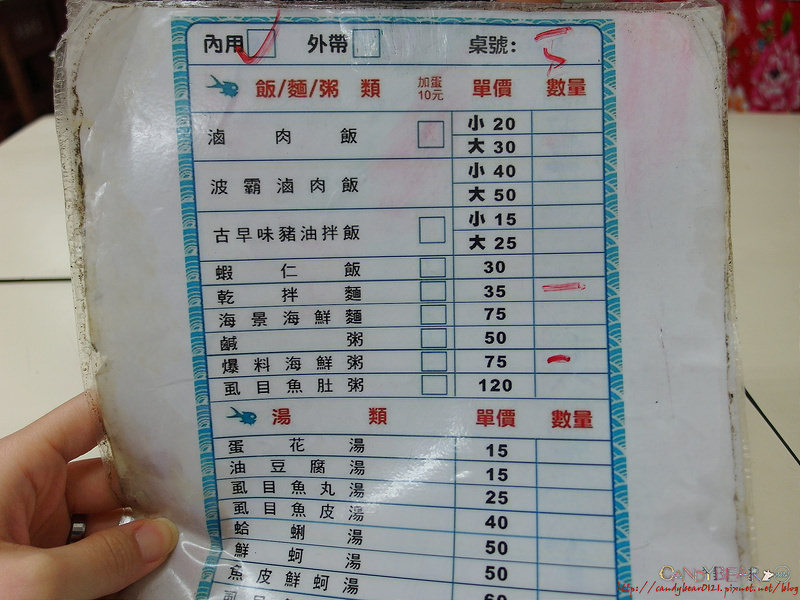 內用 外帶 桌號:
飯/麵/粥 類 加蛋10元 單價 數量
滷肉飯 小 20
大 30
波霸滷肉飯 小 40
大 50
古早味豬油拌飯 小 15
大 25
蝦仁飯 30
乾拌麵 35
海景海鮮麵 75
鹹粥 50
爆料海鮮粥 75 一
虱目魚肚粥 120
湯類 單價 數量
蛋花湯 15
油豆腐湯 15
虱目魚丸湯 25
虱目魚皮湯 40
蛤蜊湯 50
鮮蚵湯 50
魚皮鮮蚵湯 60
虱目
CANDYBEAR
http://candybear0121.pixnet.net/blog